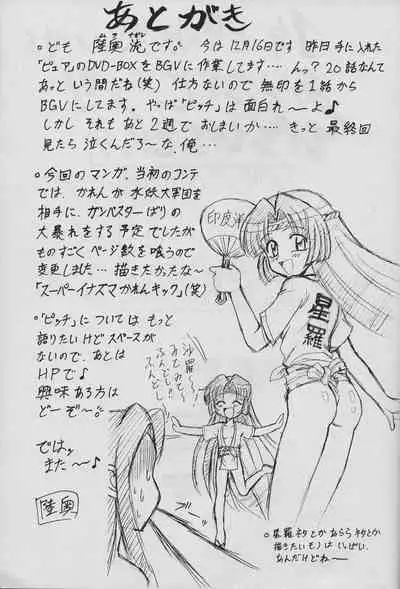 あとがき
○ども 陸奥 流です。今は12月16日です 昨日手に入れた
「ピュア」のDVD-BOXをBGVに作業してます…. んっ? 20話なんて
あっという間だね(笑) 仕方ないので 無印を1話から
BGVにしてます。やっぱ「ピッチ」は面白れ〜よ♪
しかし それもあと2週でおしまいか…. きっと 最終回
見たら泣くんだろ〜な、俺…
○今回のマンガ、当初のコンテ
では、かれんが水妖大軍団を
相手に、ガンバスターばりの
大暴れをする予定でしたが
ものすごくページ数を喰うので
変更しました… 描きたかったな〜
「スーパーイナズマかれんキック」(笑)
○「ピッチ」については もっと
語りたいけどスペースが
ないので、あとは
HPで♪
興味ある方は
ど〜ぞ〜。
ではッ
また〜♪
陸奥
印度洋
星羅
沙羅〜
みてみて〜
ふんどし〜
ふんどし
○星羅ネタとか
描きたいモノはいっぱい
あんだけどね〜